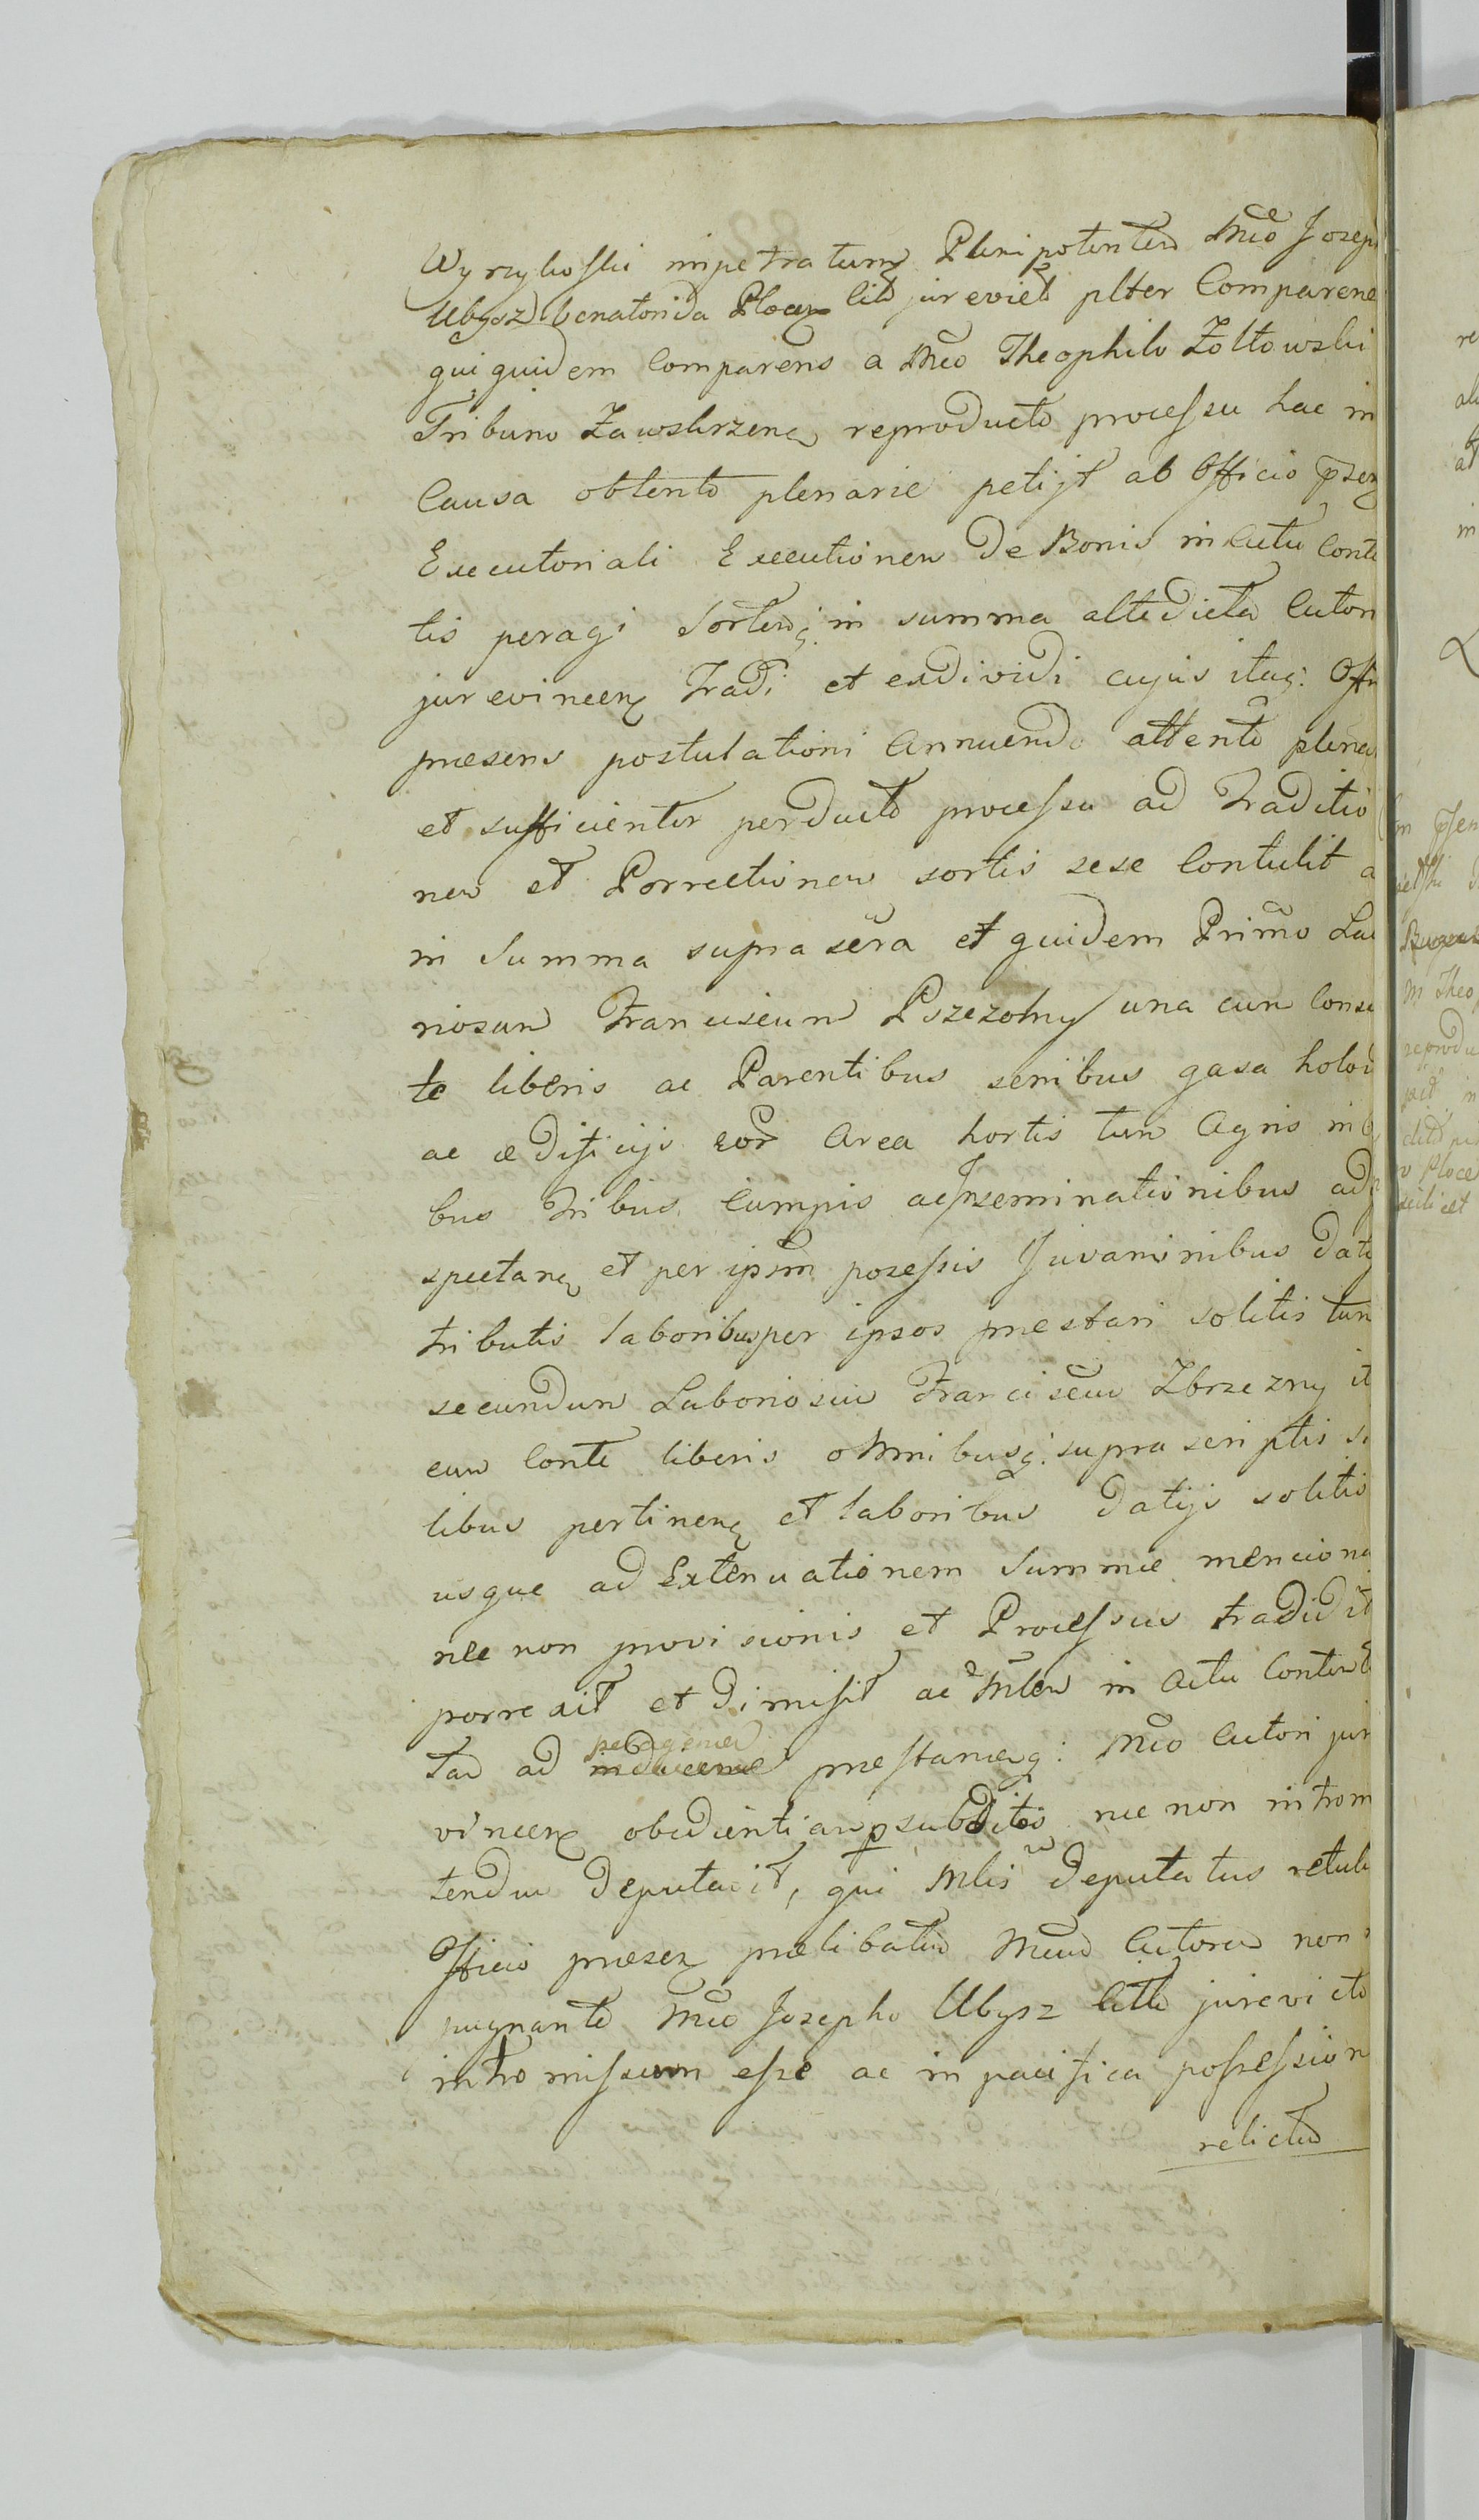 Wyrzykoſki impetratum Plenipotentem Mco Joseph
Ubysz Venatorida Plocen Citto jurevicto plter Comparene
qui quidem Comparens a Mco Theophilo Zołtowski
Tribuno Zawskrzenę reproducto proceſsu hac in
Causa obtento plenarie petijt ab Officio pſenę
Executoriali Executionem de Bonis in Actu Conte
tis peragi Sortemq; in summa altedicta Actori
jurevincenę Tradi et exdividi cujus itaq: Offi
præsens postulationi Annuendo attento plena
et sufficienter perducto proceſsu ad Traditio
nem et Porrectionem sortis sese Contulit a
in Summa supra scra et quidem Primo Lab
riosum Franciscum Pszczolny una cum Conso
te liberis ac Parentibus senibus gasa holod
ac ædificijs eor Area hortis tum Agris in
bus tribus Campis ac Inseminationibus ad
spectanę et per ipsm poseſsis Juvaminibus Datij
tributis laboribus per ipsos præstari solitis tum
secundum Laboriosum Franciscum Zbrzezny it
cum Conte liberis omnibusq: supra scriptis si
libus pertinenę et laboribus datijs solitis
usque ad Extenuationem Summæ menciona
nec non provisionis et Proceſsus tradidit
porrexit et dimiſit ac Mlem in Actu Content
tam ad peragenda præſtamq: Mco Actori jur
vincenę obedientiam p subditos nec non introm
tendum Deputavit, qui Mlis Deputatus retuli
Officio præsenę prælibatum Mcum Actorem non r
pugnante Mco Josepho Ubysz Citto jurevicto
intromiſsum eſse ac in pacifica poſseſsion
relictum